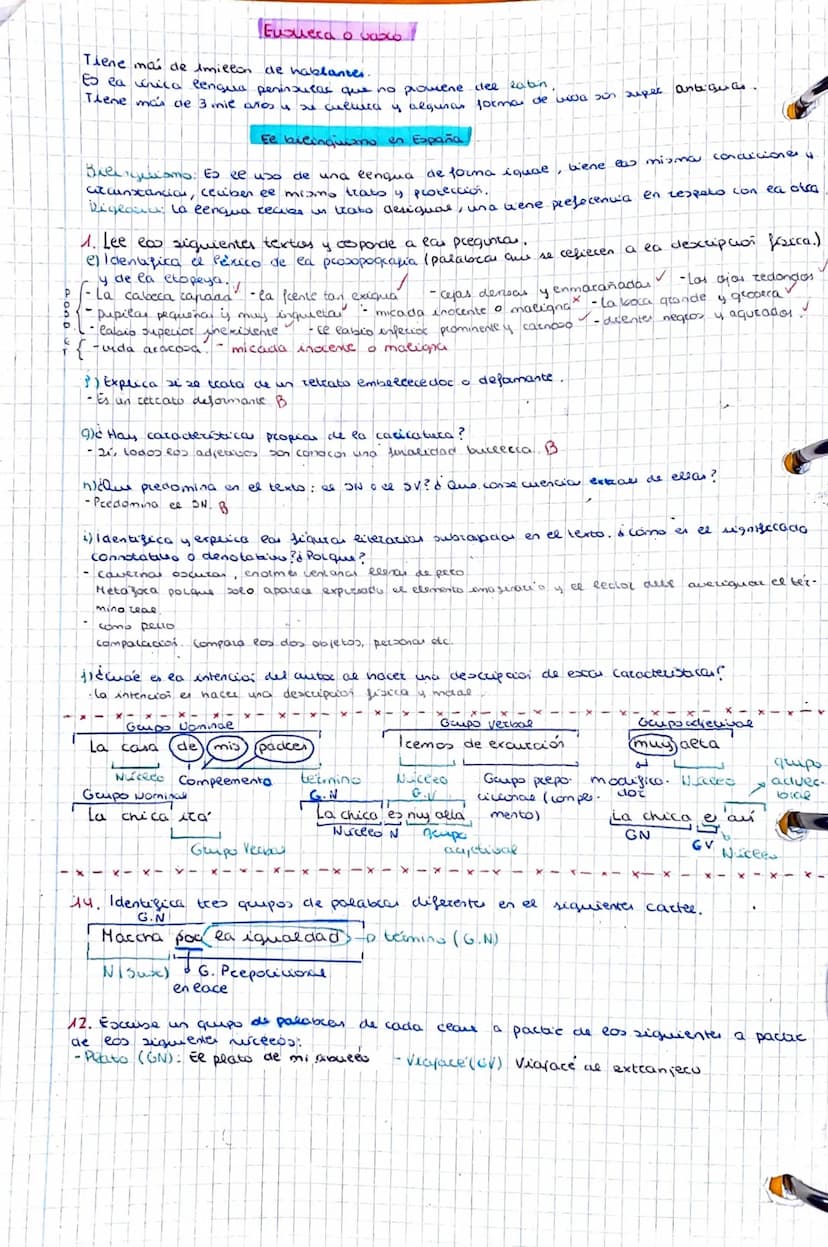 Euskera o vasco
Tiene más de 1 millón de hablantes.
Es la única lengua peninsular que no proviene del latín.
Tiene más de 3 mil años y su cultura y algunas formas de vida son super antiguas.
El bilingüismo en España
Bilingüismo: Es el uso de una lengua de forma igual, tiene las mismas condiciones y
circunstancias, reciben el mismo trato y protección.
Diglosia: La lengua recibe un trato desigual, una tiene preferencia en respeto con la otra
1. Lee los siguientes textos y responde a las preguntas.
e) Identifica el léxico de la prosopografía (palabras que se refieren a la descripción física.)
y de la etopeya.
- La cabeza rapada - la frente tan exigua - cejas densas y enmarañadas - Los ojos redondos
- pupilas pequeñas y muy inquietas - mirada inocente o maligna - la boca grande y grosera
- labio superior inexistente - el labio inferior prominente y carnoso - dientes negros y agudos.
- vida azarosa. - mirada inocente o maligna
f) Explica si se trata de un retrato embellecedor o deformante.
- Es un retrato deformante B
g) ¿Hay características propias de la caricatura?
- Sí, todos los adjetivos son con una finalidad burlesca. B
h) ¿Qué predomina en el texto: el SN o el SV? ¿Qué consecuencia extraes de ellas?
- Predomina el SN. B
i) Identifica y explica las figuras literarias subrayadas en el texto. ¿Cómo es el significado
connotativo o denotativo? ¿Por qué?
- cavernas oscuras, enormes ventanas llenas de pelo
Metáfora porque solo aparece expresado el elemento imaginario y el lector debe averiguar el tér-
mino real.
- como perro
comparación. Compara los dos objetos, personas etc.
j) ¿Cuál es la intención del autor al hacer una descripción de estas características?
- La intención es hacer una descripción física y moral.
Grupo Nominal Grupo verbal Grupo adjetival
La casa de mis padres Iremos de excursión muy alta
Núcleo Complemento término Núcleo Grupo prepo- modifica- Núcleo grupo
Grupo Nominal G.N G.V sicional (comple- dor adver-
La chica irá La chica es muy alta mento) La chica es así bial
Grupo Verbal Núcleo N grupo GN GV Núcleo
adjetival
14. Identifica tres grupos de palabras diferentes en el siguiente cartel.
G.N
Marcha por la igualdad término (G.N)
N (sus) G. Preposicional
enlace
12. Escribe un grupo de palabras de cada clase a partir de los siguientes a partir
de los siguientes núcleos:
- Plato (GN): El plato de mi abuelo - Viajaré (GV) Viajaré al extranjero